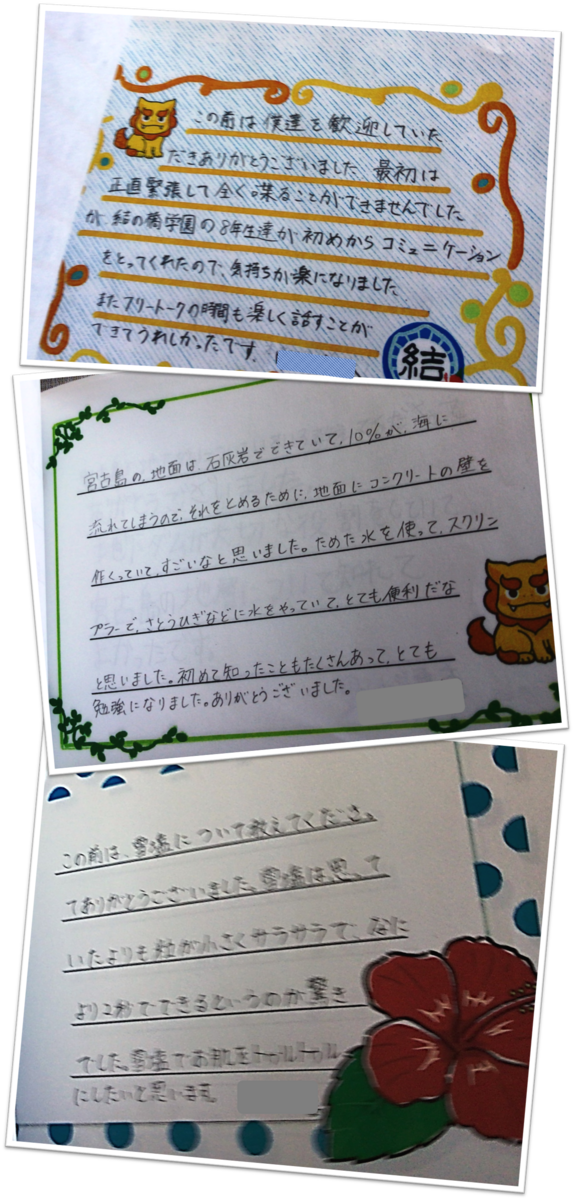 この前は僕達を歓迎していた
だきありがとうございました。最初は
正直緊張して全く喋ることができませんでした
が、結の橋学園の8年生達が初めからコミュニケーション
をとってくれたので、気持ちが楽になりました。
またフリートークの時間も楽しく話すことが
できてうれしかったです。
結
宮古島の、地面は、石灰岩でできていて、10%が、海に
流れてしまうので、それをとめるために、地面にコンクリートの壁を
作くっていて、すごいなと思いました。ためた水を使って、スクリン
プラーで、さとうひぎなどに水をやっていて、とても便利だな
と思いました。初めて知ったこともたくさんあって、とても
勉強になりました。ありがとうございました。
この前は、雪塩について教えてくださっ
てありがとうございました。雪塩は思って
いたよりも粒が小さくサラサラで、なに
より2秒でできるというのが驚き
でした。雪塩でお肌をトゥルトゥル
にしたいと思います。